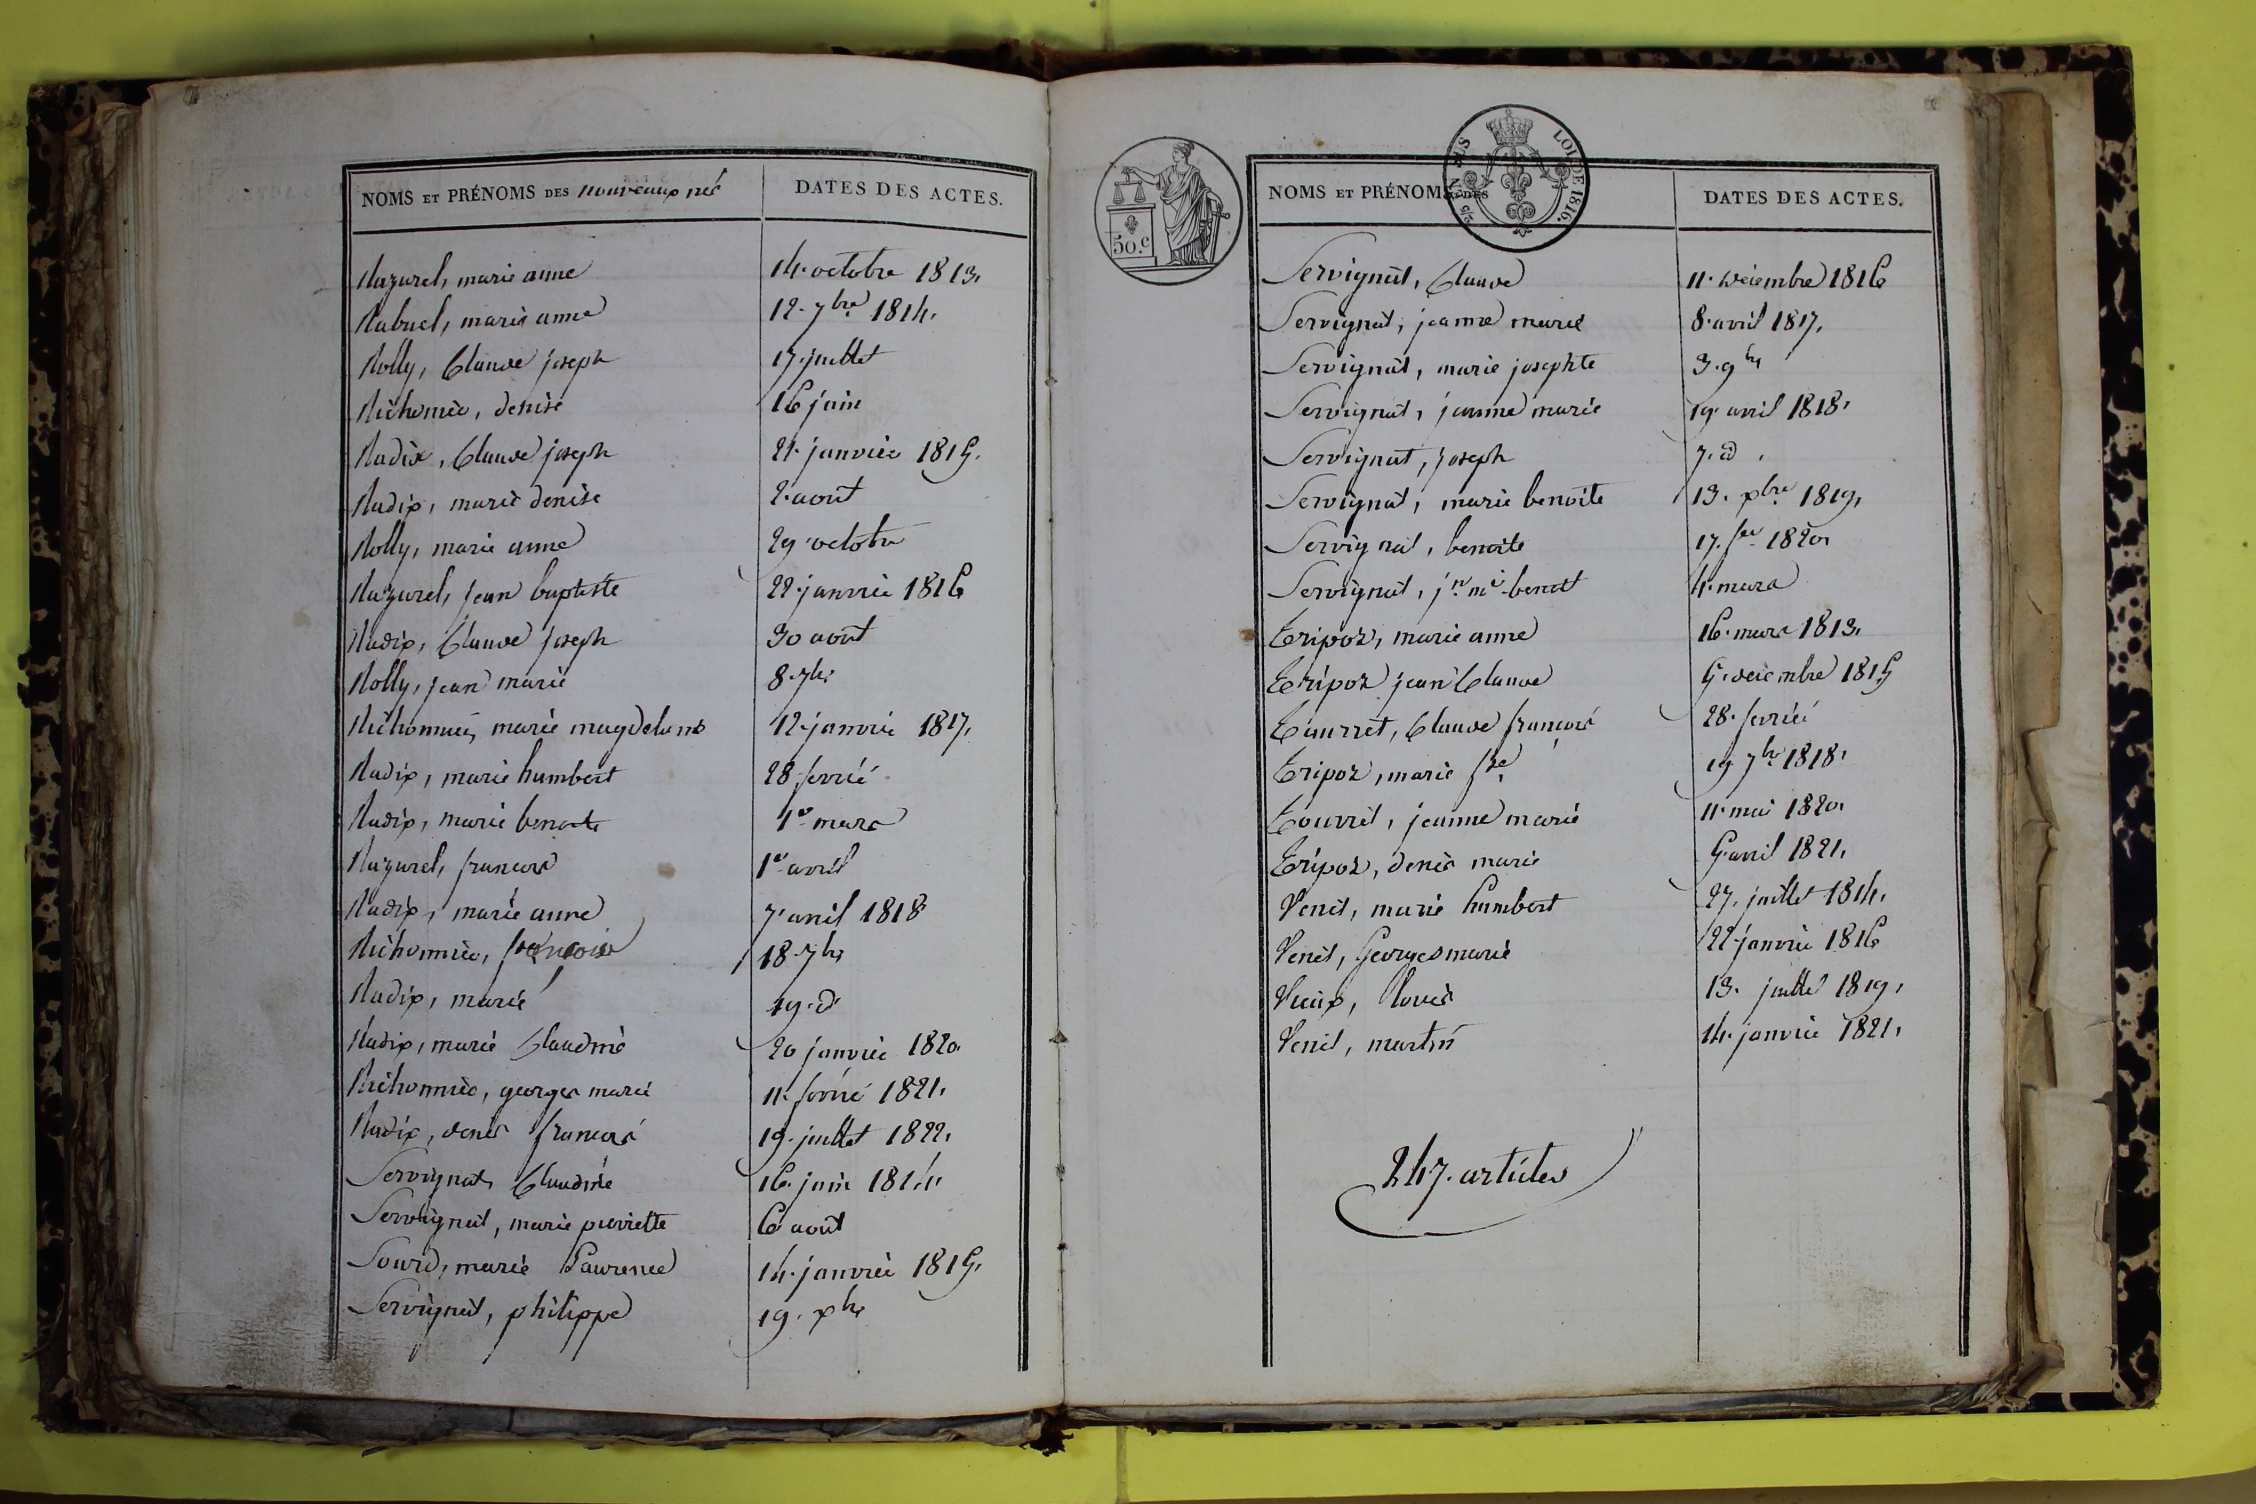 NOMS ET PRÉNOMS DES nouveaux nés
DATES DES ACTES.
Razurel, marie anne 14. octobre 1813.
Rabuel, marie anne 12. 7bre 1814.
Rolly, Claude joseph 17. juillet
Richonnier, denise 16 juin
Radix, Claude joseph 21. janvier 1815.
Radix, marie denise 2. aout
Rolly, marie anne 29. octobre
Razurel, jean baptiste 22. janvier 1816
Radix, Claude joseph 30 aout
Rolly, jean marie 8. 7bre
Richonnier, marie magdelene 12. janvier 1817.
Radix, marie humbert 28. fevrier
Radix, marie benoite 1er mars
Razurel, francois 1er avril
Radix, marie anne 7. avril 1818
Richonnier, francois 18. 7bre
Radix, marie 19. d
Radix, marie Claudine 20 janvier 1820.
Richonnier, georges marie 11. fevrier 1821.
Radix, denis francois 19. juillet 1822.
Servignat, Claudine 16. juin 1814.
Servignat, marie pierrette 6 aout
Sourd, marie Laurence 14. janvier 1815.
Servignat, philippe 19. xbre
50.c
LOI DE 1816.
NOMS ET PRÉNOMS DES
DATES DES ACTES.
Servignat, Claude 11. decembre 1816
Servignat, jeanne marie 8. avril 1817.
Servignat, marie josephte 3. 9bre
Servignat, jeanne marie 19. avril 1818.
Servignat, joseph 7. d.
Servignat, marie benoite 13. xbre 1819.
Servignat, benoite 17. fer 1820.
Servignat, jn. mie benoit 4. mars
Tripoz, marie anne 16. mars 1813.
Tripoz jean Claude 5. decembre 1815
Tourret, Claude francois 28. fevrier
Tripoz, marie fse 19 7bre 1818.
Tourret, jeanne marie 11. mai 1820.
Tripoz, denis marie 5. avril 1821.
Venet, marie humbert 27. juillet 1814.
Venet, Georges marie 22 janvier 1816
Vieux, Louis 13. juillet 1819.
Venet, martin 14. janvier 1821.
247. articles